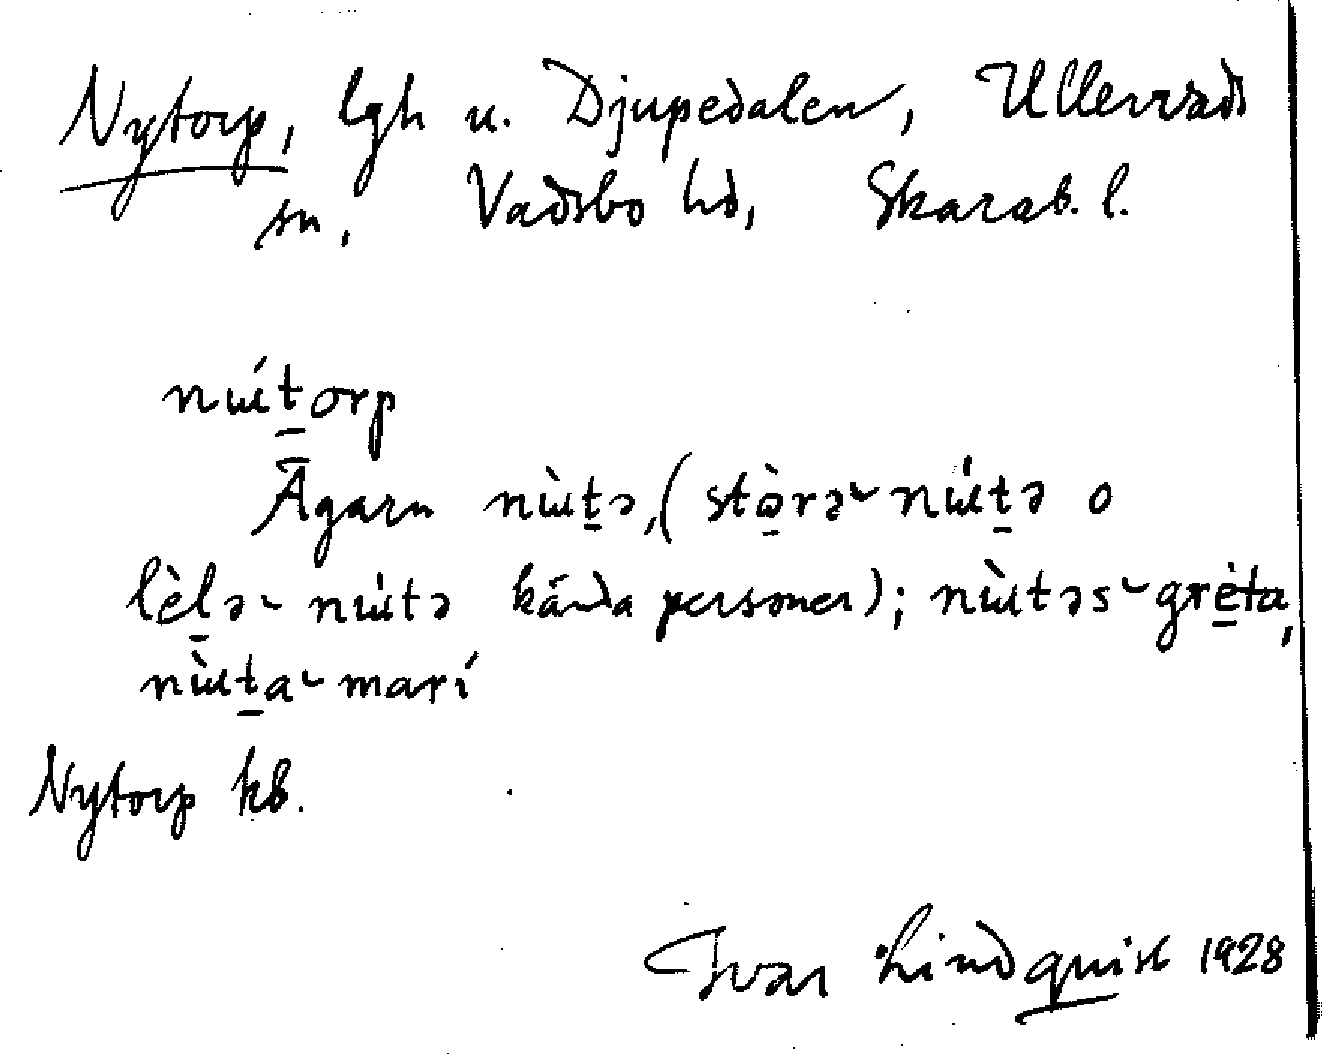 Nytorp, lgh u. Djupedalen, Ullervads
sn, Vadsbo hd, Skarab. l.
nɯ́t̲orp
Ägarn nɯ̀t̲ə, (stò̲rə˘nɯ́t̲ə o
lèl̲ə˘nɯ́tə kända personer); nɯ̀təs˘gré̲ta,
nɯ̀t̲a˘marí
Nytorp kb.
Ivar Lindquist 1928